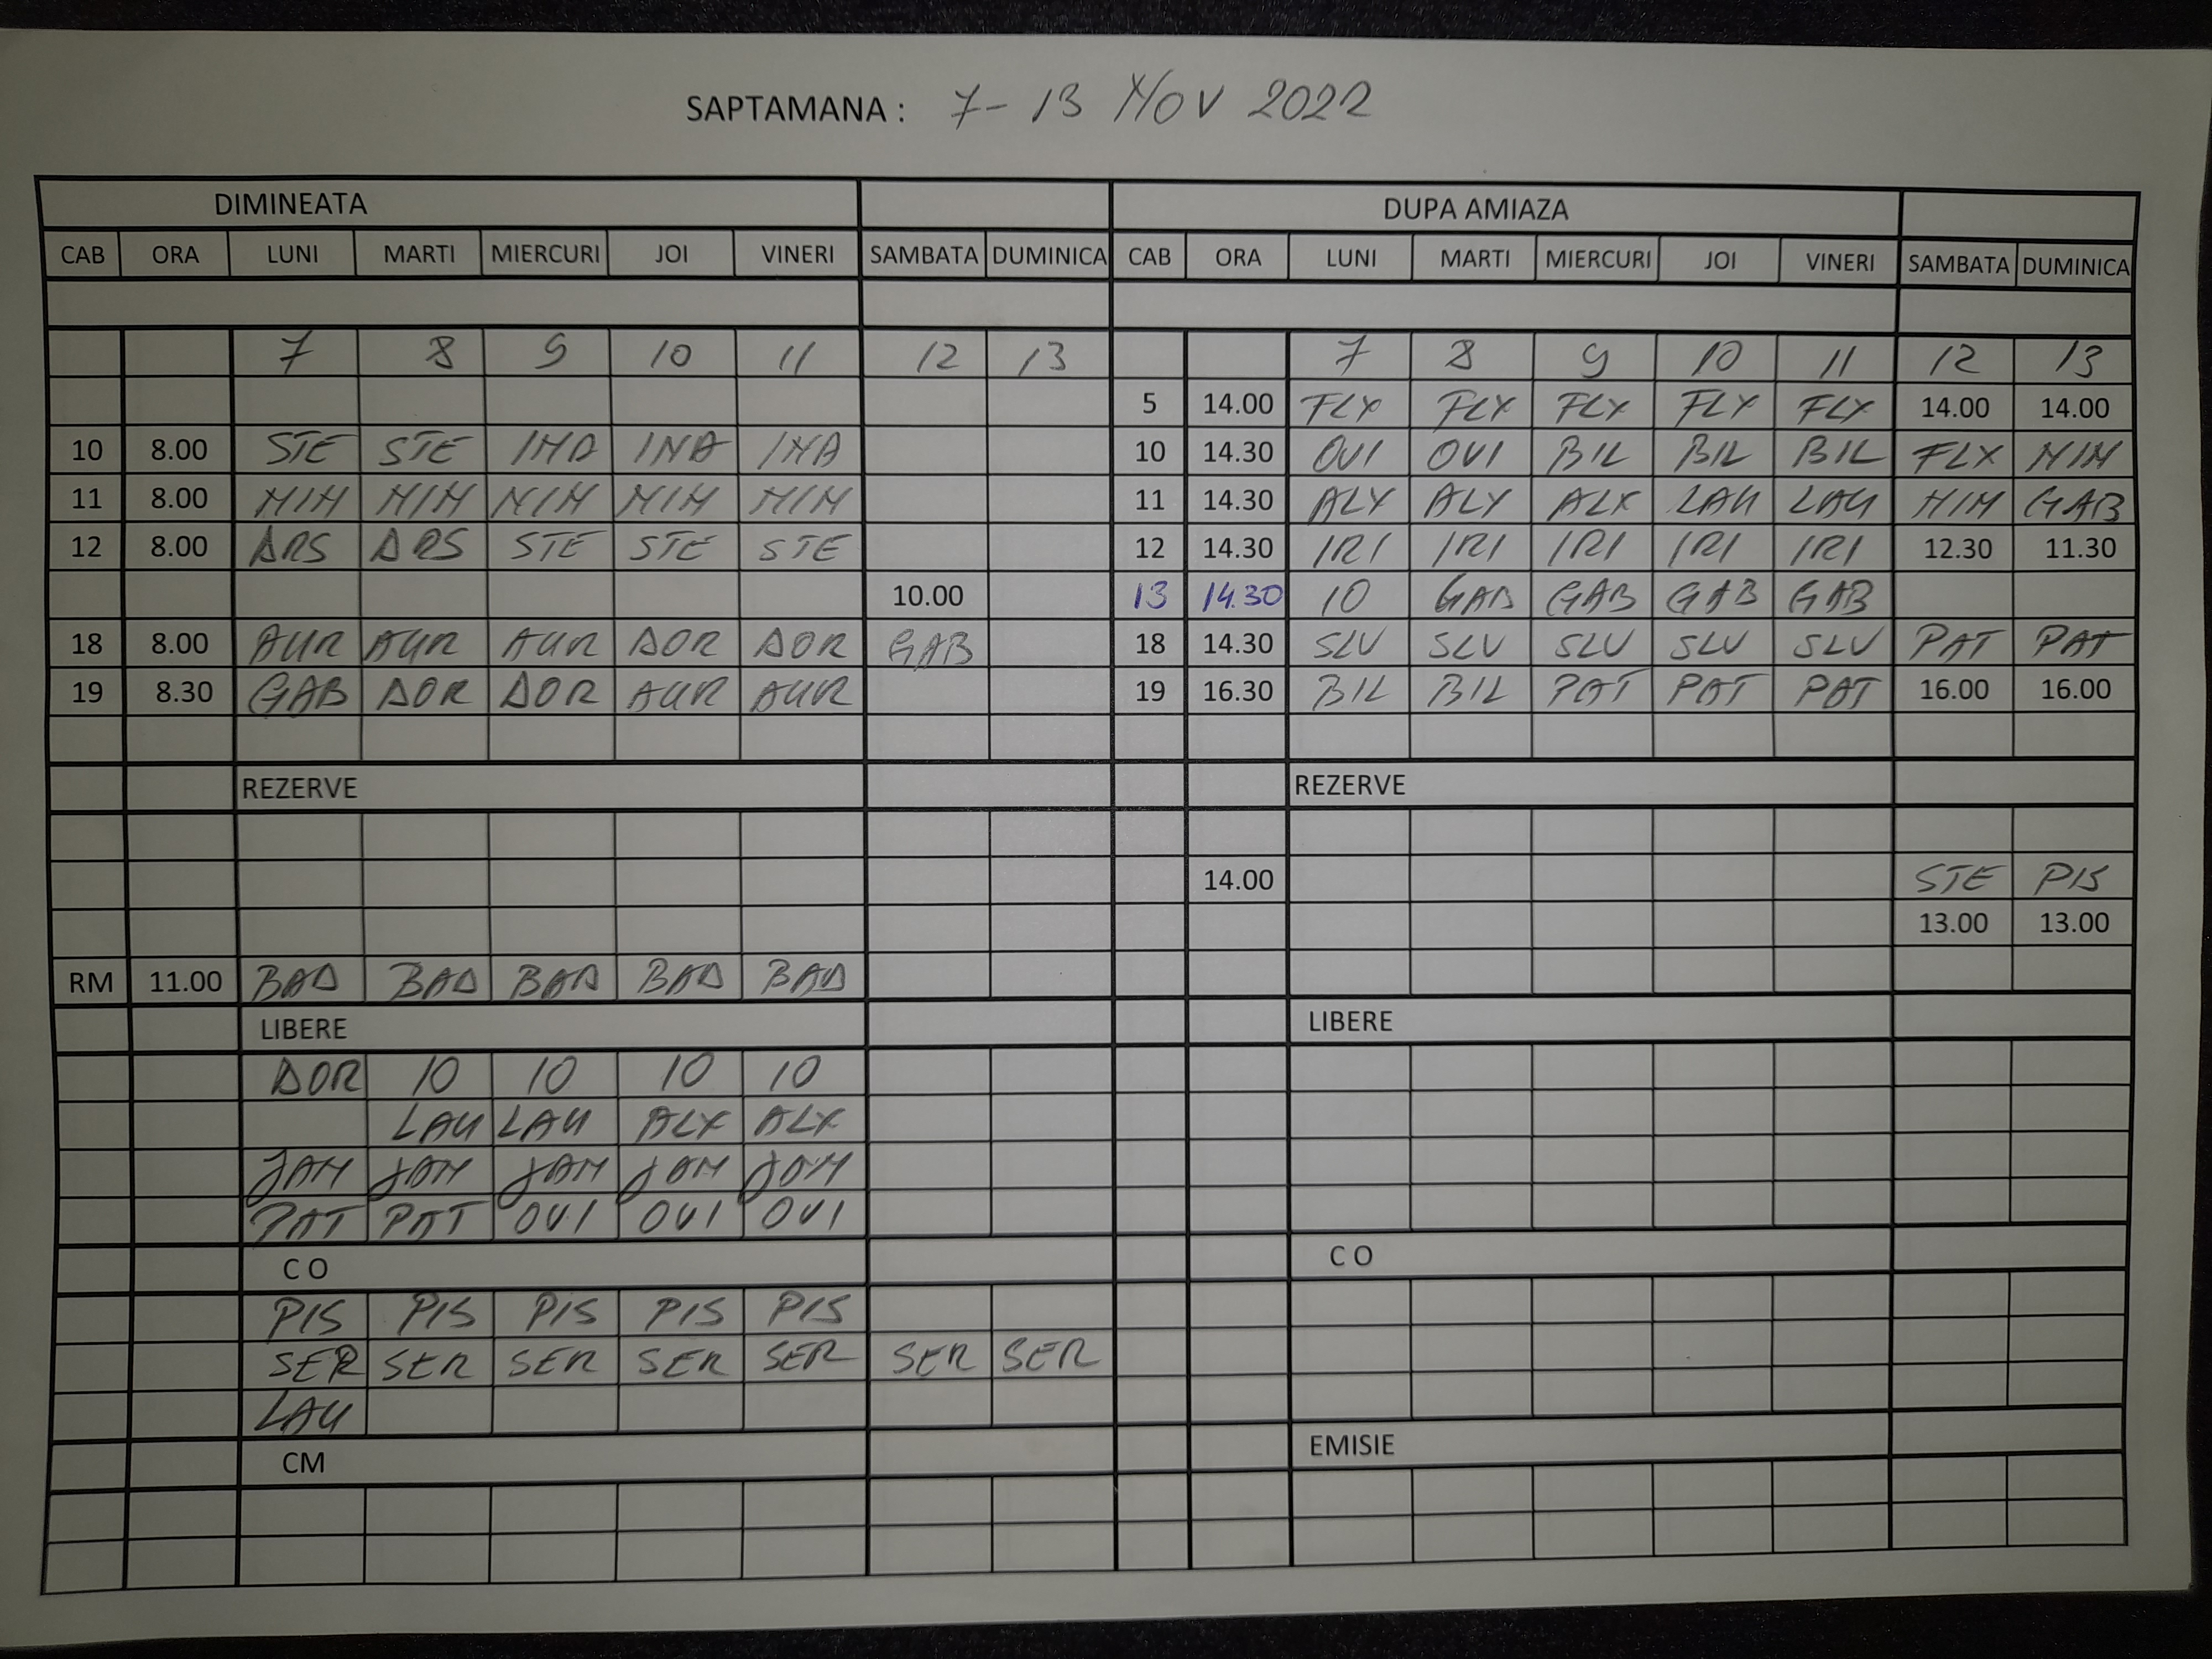 SAPTAMANA : 7- 13 NOV 2022
DIMINEATA DUPA AMIAZA
CAB ORA LUNI MARTI MIERCURI JOI VINERI SAMBATA DUMINICA CAB ORA LUNI MARTI MIERCURI JOI VINERI SAMBATA DUMINICA
7 8 9 10 11 12 13 7 8 9 10 11 12 13
5 14.00 FLX FLX FLX FLX FLX 14.00 14.00
10 8.00 STE STE INA INA INA 10 14.30 OVI OVI BIL BIL BIL FLX MIH
11 8.00 MIH MIH MIH MIH MIH 11 14.30 ALX ALX ALX LAU LAU MIH GAB
12 8.00 DRS DRS STE STE STE 12 14.30 IRI IRI IRI IRI IRI 12.30 11.30
10.00 13 14.30 10 GAB GAB GAB GAB
18 8.00 AUR AUR AUR DOR DOR GAB 18 14.30 SLV SLV SLV SLV SLV PAT PAT
19 8.30 GAB DOR DOR AUR AUR 19 16.30 BIL BIL PAT PAT PAT 16.00 16.00
REZERVE REZERVE
14.00 STE PIS
13.00 13.00
RM 11.00 BAD BAD BAD BAD BAD
LIBERE LIBERE
DOR 10 10 10 10
LAU LAU ALX ALX
PAT PAT OVI OVI OVI
C O C O
PIS PIS PIS PIS PIS
SER SER SER SER SER SER SER
LAU
CM EMISIE